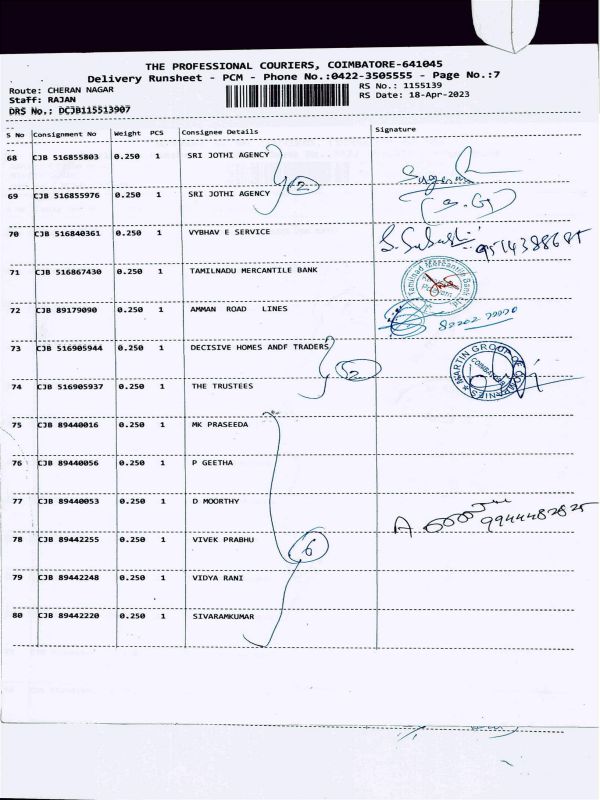 THE PROFESSIONAL COURIERS, COIMBATORE-641045
Delivery Runsheet - PCM - Phone No.:0422-3505555 - Page No.:7
Route: CHERAN NAGAR
RS No.: 1155139
Staff: RAJAN
RS Date: 18-Apr-2023
DRS No.; DCJB115513907
S No Consignment No Weight PCS Consignee Details Signature
68 CJB 516855803 0.250 1 SRI JOTHI AGENCY
2
69 CJB 516855976 0.250 1 SRI JOTHI AGENCY
70 CJB 516840361 0.250 1 VYBHAV E SERVICE
71 CJB 516867430 0.250 1 TAMILNADU MERCANTILE BANK
Tamilnad Mercantile Bank
72 CJB 89179090 0.250 1 AMMAN ROAD LINES
73 CJB 516905944 0.250 1 DECISIVE HOMES ANDF TRADERS
MARTIN GROUP OF COMPANIES
COIMBATORE
2
74 CJB 516905937 0.250 1 THE TRUSTEES
75 CJB 89440016 0.250 1 MK PRASEEDA
76 CJB 89440056 0.250 1 P GEETHA
77 CJB 89440053 0.250 1 D MOORTHY
9944482825
78 CJB 89442255 0.250 1 VIVEK PRABHU
6
79 CJB 89442248 0.250 1 VIDYA RANI
80 CJB 89442220 0.250 1 SIVARAMKUMAR